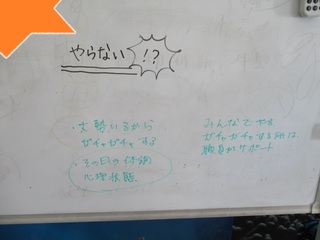 やらない!?
・大勢いるから
ガチャガチャする
・その日の体調
心理状態
みんなでやす
ガチャガチャする時は
職員がサポート